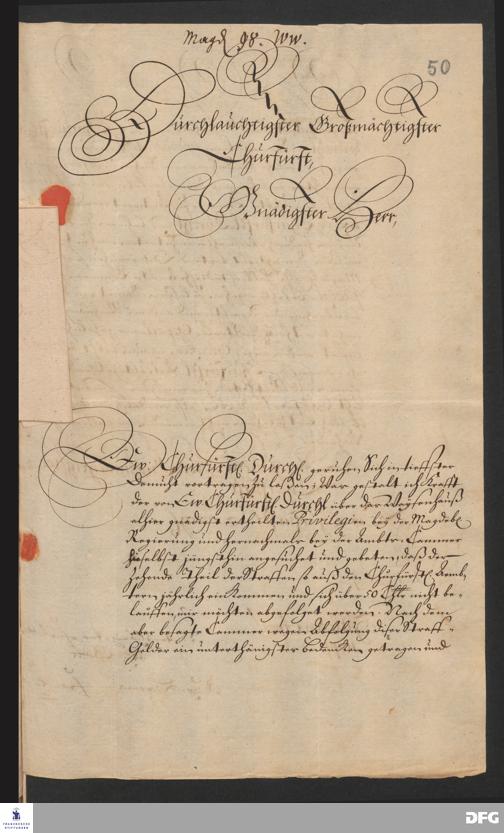 Magd. 98. WW.
50
Durchlauchtigster Großmächtigster
Churfürst,
Gnädigster Herr,
Ew. Churfürstl. Durchl. geruhen Sich in tieffster
Demuht vortragen zu laßen; Was gestalt ich Krafft
der von Ew Churfürstl. Durchl über das Waysenhauß
alhier gnädigst ertheilten Privilegien bey der Magdeb.
Regierung und hernachmals bey der Ambts-Cammer
daselbst jüngsthin angesuchet und gebeten, daß der
zehende Theil der Straffen, so auß den Churfürstl. Ämb-
tern jährlich einkommen und sich über 50 Thlr nicht be-
lauffen, mir möchten abgefolget werden. Nach dem
aber besagte Cammer wegen Abfolgung dieser Straff-
Gelder ein unterthänigster bedencken getragen und
FRANCKESCHE
STIFTUNGEN
DFG